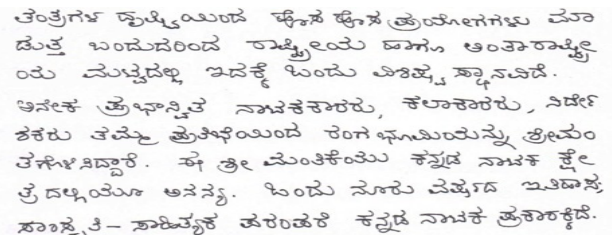 ತಂತ್ರಗಳ ದೃಷ್ಟಿಯಿಂದ ಹೊಸ ಹೊಸ ಪ್ರಯೋಗಗಳು ಮಾ
ಡುತ್ತ ಬಂದುದರಿಂದ ರಾಷ್ಟ್ರೀಯ ಹಾಗೂ ಅಂತಾರಾಷ್ಟ್ರೀ
ಯ ಮಟ್ಟದಲ್ಲಿ ಇದಕ್ಕೆ ಒಂದು ವಿಶಿಷ್ಟ ಸ್ಥಾನವಿದೆ.
ಅನೇಕ ಪ್ರಭಾನ್ವಿತ ನಾಟಕಕಾರರು, ಕಲಾಕಾರರು, ನಿರ್ದೇ
ಶಕರು ತಮ್ಮ ಪ್ರತಿಭೆಯಿಂದ ರಂಗಭೂಮಿಯನ್ನು ಶ್ರೀಮಂ
ತಗೊಳಿಸಿದ್ದಾರೆ. ಈ ಶ್ರೀಮಂತಿಕೆಯು ಕನ್ನಡ ನಾಟಕ ಕ್ಷೇ
ತ್ರದಲ್ಲಿಯೂ ಅನನ್ಯ. ಒಂದು ನೂರು ವರ್ಷದ ಇತಿಹಾಸ,
ಸಾಂಸ್ಕೃತಿ - ಸಾಹಿತ್ಯಕ ಪರಂಪರೆ ಕನ್ನಡ ನಾಟಕ ಪ್ರಕಾರಕ್ಕಿದೆ.